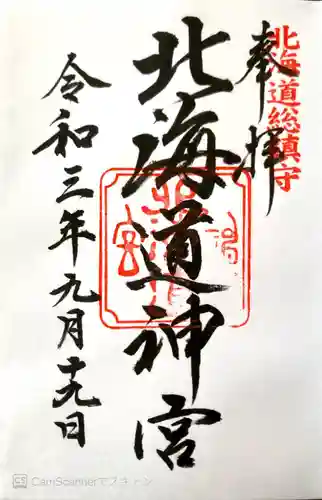 奉拝
北海道総鎮守
北海道神宮
令和三年九月十九日
CS CamScannerでスキャン